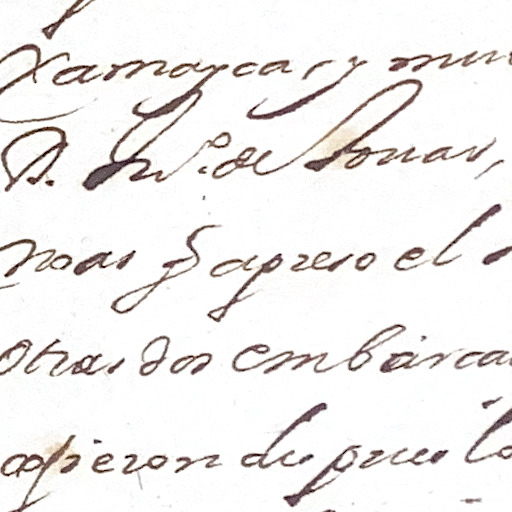 Xamayca, y mu
D. Ju.º de
noas q apreso el
otras dos embarca
cojieron despues lo